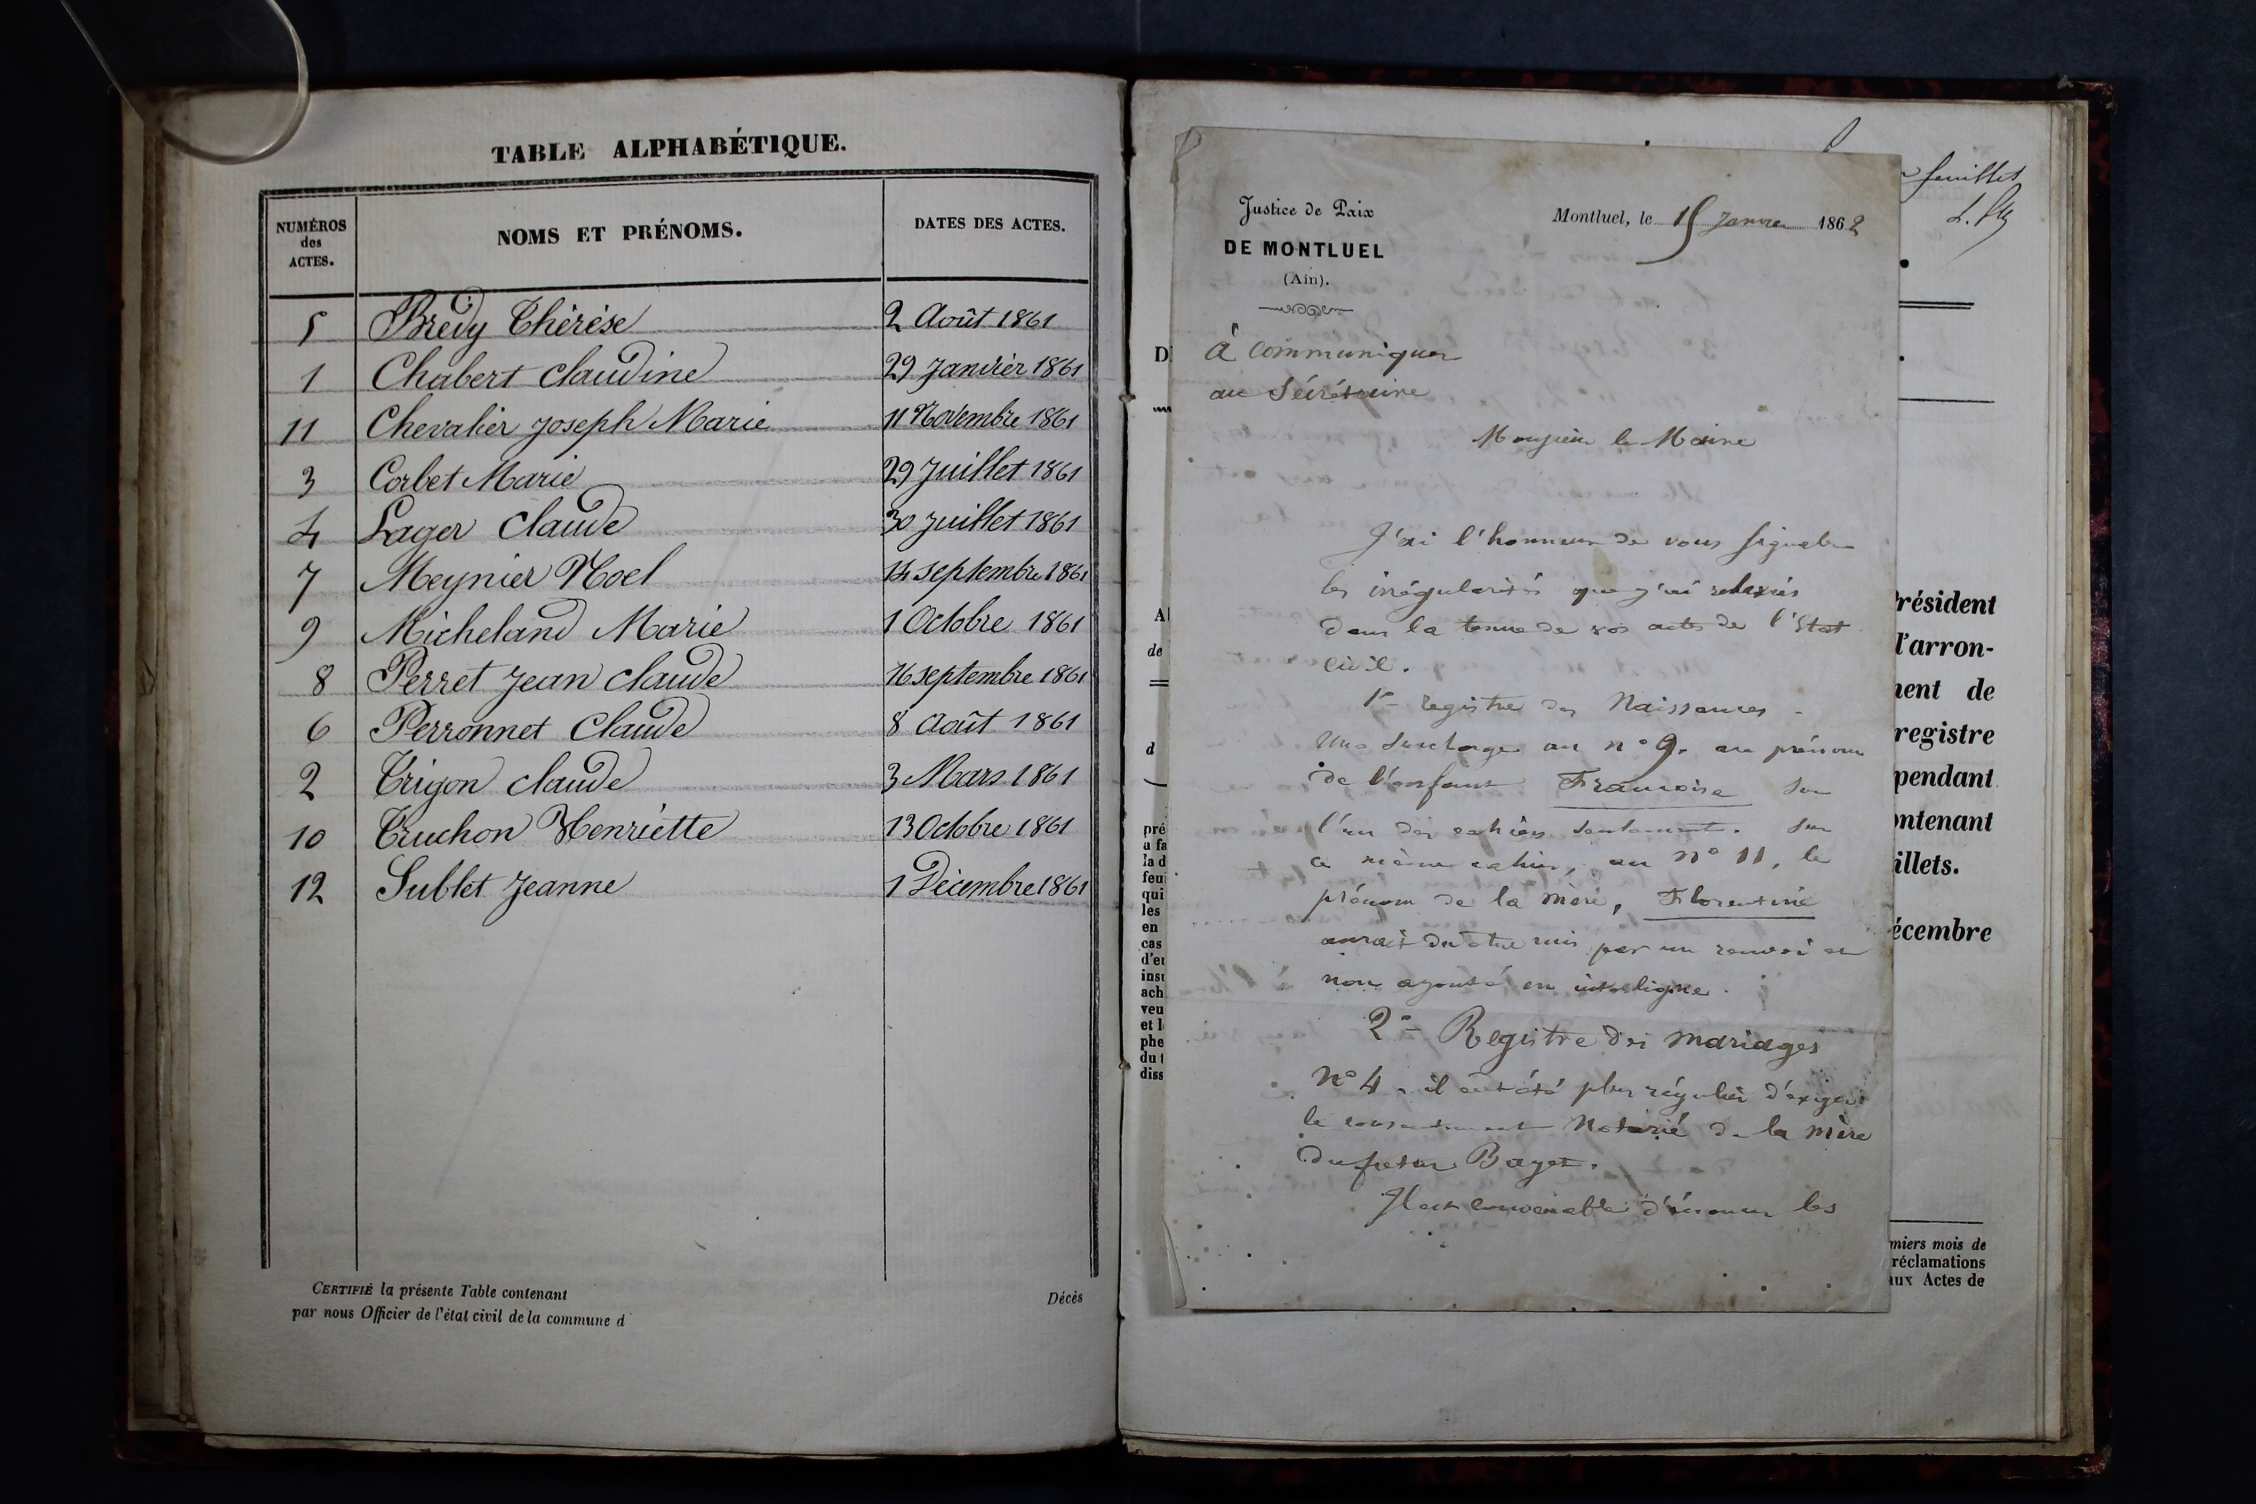 TABLE ALPHABÉTIQUE.
NUMÉROS des ACTES. NOMS ET PRÉNOMS. DATES DES ACTES.
5 Brédy Thérèse 2 Août 1861
1 Chabert Claudine 29 Janvier 1861
11 Chevalier Joseph Marie 11 Novembre 1861
3 Corbet Marie 29 Juillet 1861
4 Lager Claude 30 Juillet 1861
7 Meynier Noel 14 septembre 1861
9 Micheland Marie 1 Octobre 1861
8 Perret Jean Claude 16 septembre 1861
6 Perronnet Claude 8 août 1861
2 Trigon Claude 3 Mars 1861
10 Truchon Henriette 13 Octobre 1861
12 Sublet Jeanne 1 Décembre 1861
CERTIFIÉ la présente Table contenant Décès
par nous Officier de l'état civil de la commune d
feuillet
Justice de Paix
DE MONTLUEL
(Ain).
Montluel, le 15 Janvier 1862
à communiquer
au Sécrétaire
Monsieur le Maire
J'ai l'honneur de vous signaler
les irrégularités que j'ai
dans la tenue de vos actes de l'Etat
civil.
1° registre des Naissances -
Une surcharge au n° 9. au prénom
de l'enfant Francoise sur
l'un des cahiers seulement. Sur
ce même cahier, au n° 11, le
prénom de la mère, Florentine
aurait du être mis par un renvoi et
non ajouté en interligne.
2° - Registre des mariages
N° 4. il eut été plus régulier d'exiger
le consentement Notarié de la mère
du futur Bayet.
Il est convenable d'énoncer les
D
A
de
d
pré
u fa
la d
feui
qui
les
en
cas
d'e
insc
ach
veu
et l
phe
du t
diss
résident
l'arron-
ent de
registre
pendant
ontenant
illets.
écembre
miers mois de
réclamations
aux Actes de